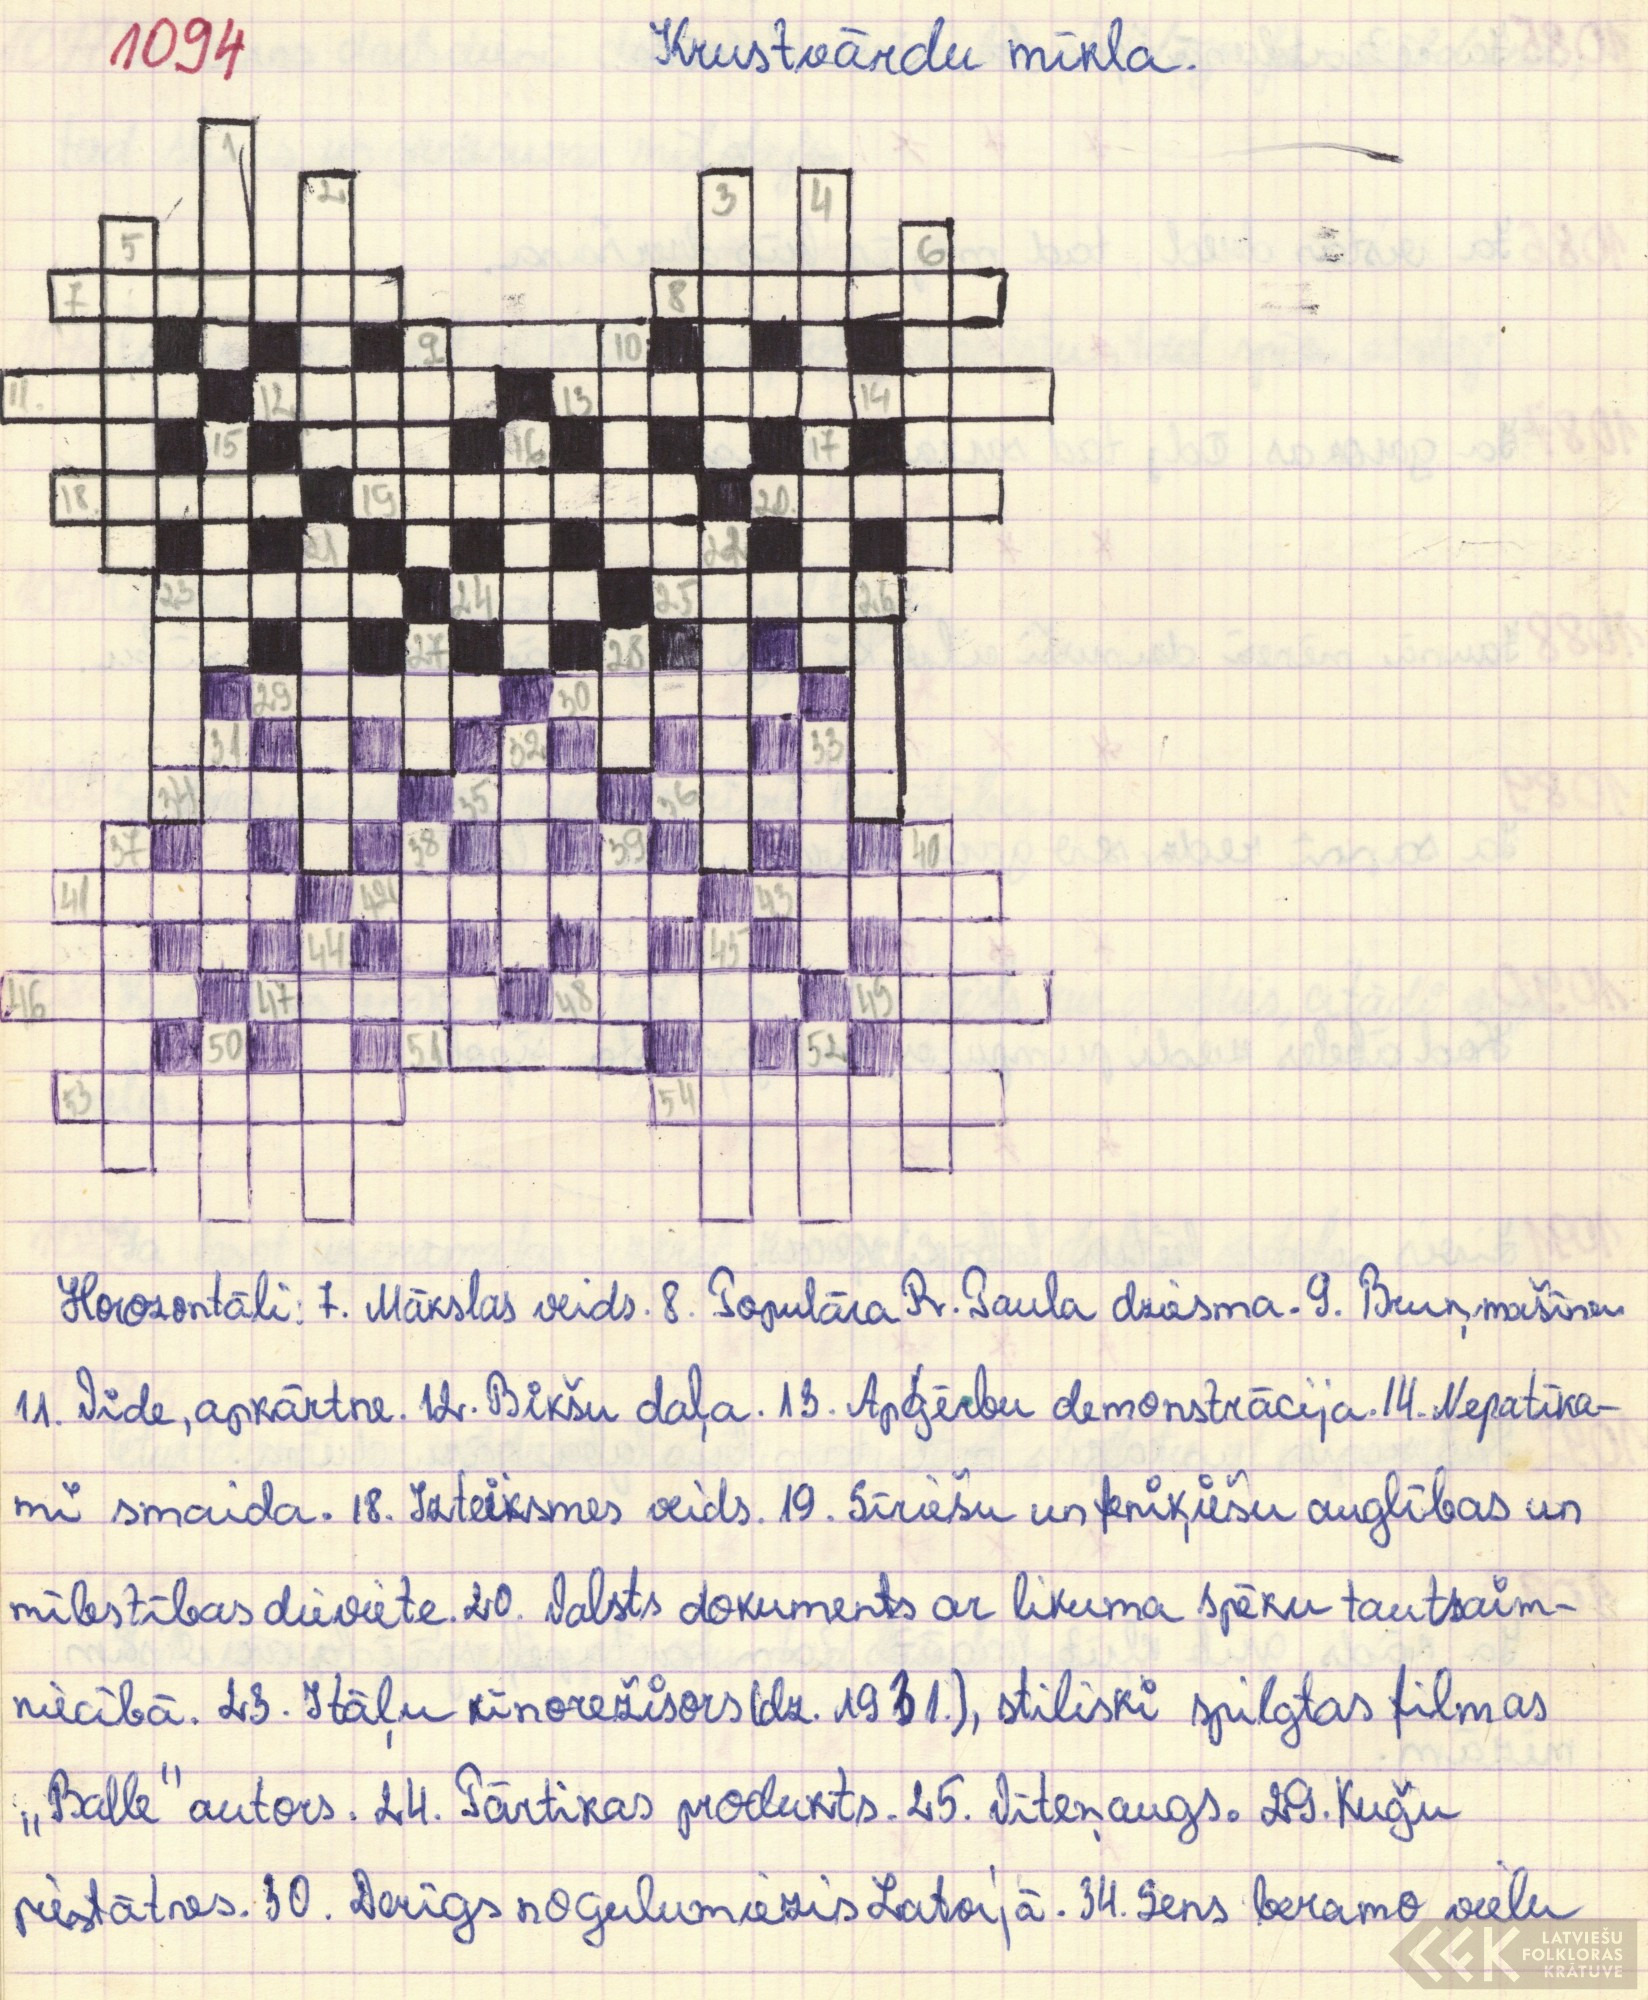 1094
Krustvārdu mīkla.
1
2
3
4
5
6
7
8
9
10
11.
12
13
14
15
16
17
18
19
20.
21
22
23
24
25
26
27
28
29
30
31
32
33
34
35
36
37
38
39
40
41
42
43
44
45
46
47
48
49
50
51
52
53
54
Horozontāli: 7. Mākslas veids. 8. Populāra R. Paula dziesma. 9. Bruņmašīna
11. Vide, apkārtne. 12. Bikšu daļa. 13. Apģērbu demonstrācija. 14. Nepatīka-
mi smaida. 18. Izteiksmes veids. 19. Sīriešu un feniķiešu auglības un
mīlestības dieviete. 20. Valsts dokuments ar likuma spēku tautsaim-
niecībā. 23. Itāļu kinorežisors (dz. 1931.), stiliski spilgtas filmas
„Balle" autors. 24. Pārtikas produkts. 25. Vīteņaugs. 29. Kuģu
piestātnes. 30. Derīgs nogulumiezis Latvijā. 34. Sens beramo vielu
LATVIEŠU
FOLKLORAS
KRĀTUVE